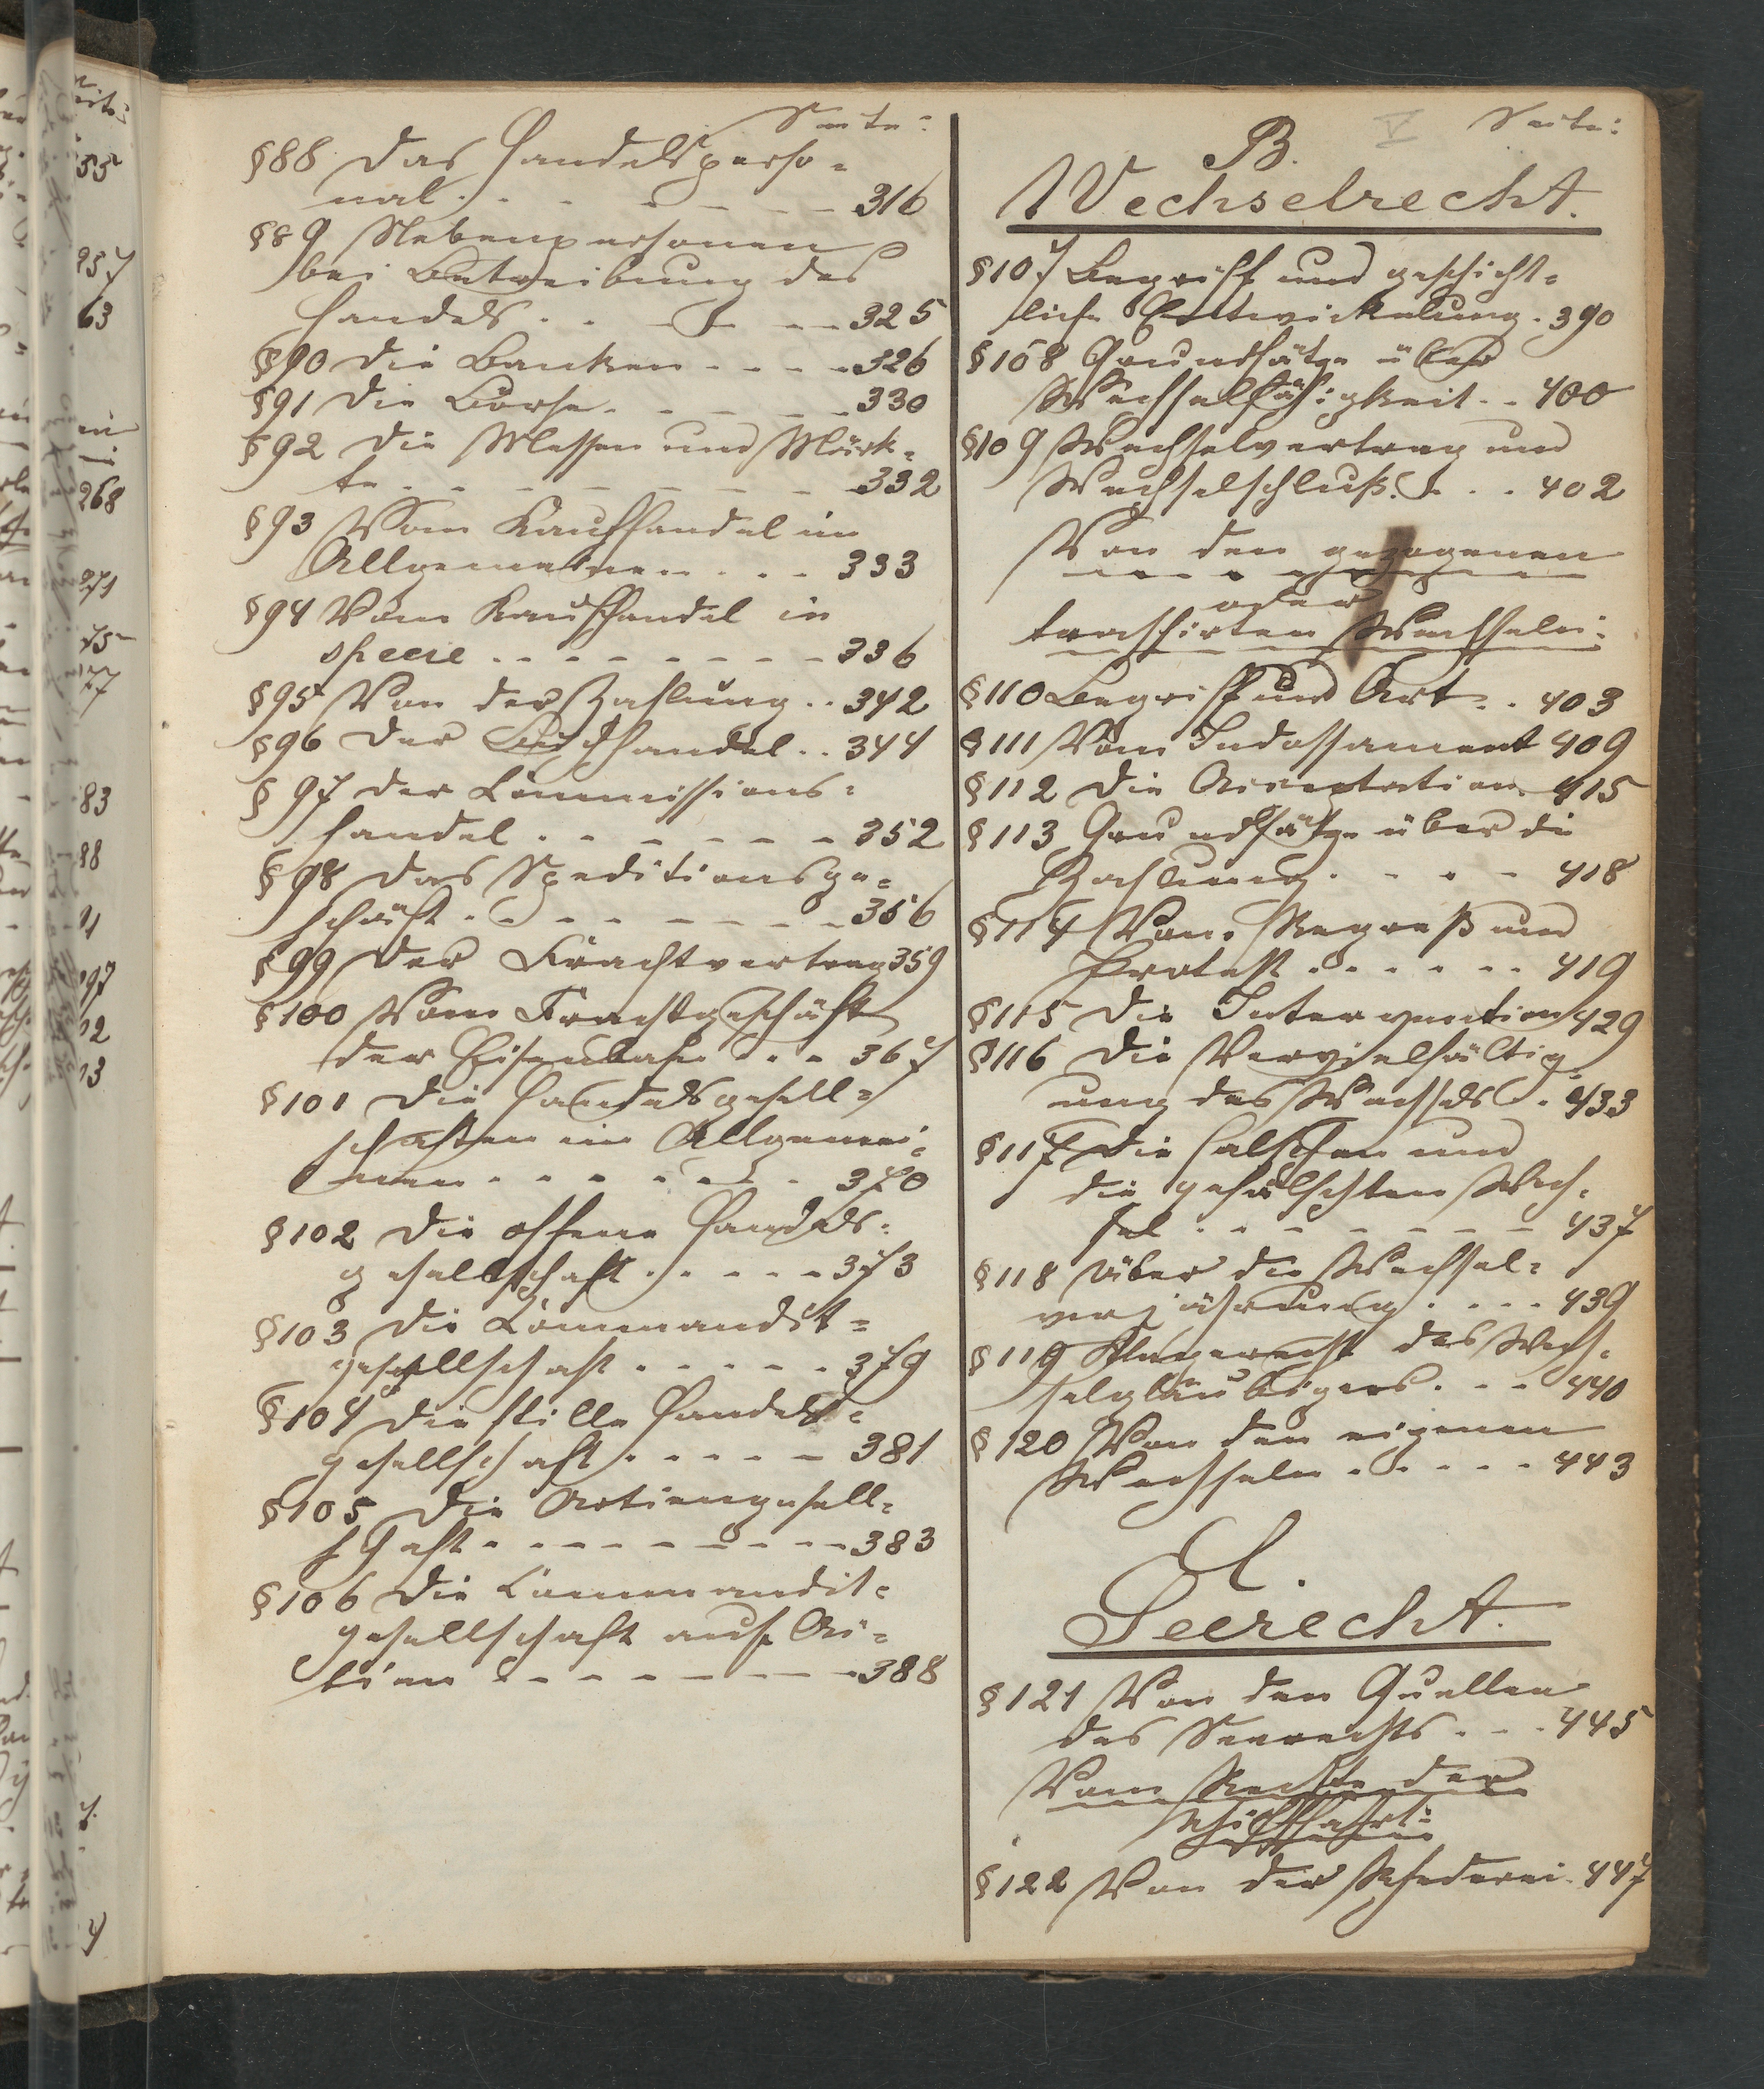 Seite:
§88 Das Handelsperso-
nal . . . . . . 316
§89 Nebenpersonen
bei Betreibung des
Handels . . . . . 325
§90 Die Banken . . . . 326
§91 Die Börse . . . . . 330
§92 Die Messen und Märk-
te . . . . . . . . 332
§93 Vom Kaufhandel im
Allgemeinen . . . 333
§94 Vom Kaufhandel in
specie . . . . . . . . 336
§95 Von der Zahlung . . 342
§96 Der Buchhandel . . 344
§97 Der Commissions-
handel . . . . . . 352
§98 Das Speditionsge-
schäft . . . . . . . . 356
§99 Der Frachtvertrag 359
§100 Vom Frachtgeschäft
der Eisenbahn . . . 367
§101 Die Handelsgesell-
schaften im Allgemei-
nen . . . . . . . 370
§102 Die offene Handels-
gesellschaft . . . . . 373
§103 Die Commandit-
gesellschaft . . . . . 379
§104 Die stille Handels-
gesellschaft . . . . . 381
§105 Die Actiengesell-
schaft . . . . . . . . . 383
§106 Die Commandit-
gesellschaft auf Ac-
tien . . . . . . . . 388
V Seite:
B.
Wechselrecht.
§107 Begriff und geschicht-
liche Entwickelung . 390
§108 Grundsätze über
Wechselfähigkeit . . 400
§109 Wechselvertrag und
Wechselschluß . . . 402
Von den gezogenen
oder
trassirten Wechseln:
§110 Begriff und Art . . 403
§111 Vom Indossament 409
§112 Die Acceptation 415
§113 Grundsätze über die
Zahlung . . . . 418
§114 Vom Regreß und
Protest . . . . . . 419
§115 Die Intervention 429
§116 Die Vervielfältig-
ung des Wechsels . 433
§117 Die falschen und
die gefälschten Wech-
sel . . . . . . . . 437
§118 Über die Wechsel-
verjährung . . . . 439
§119 Klagerecht des Wech-
selgläubigers . . . 440
§120 Von den eigenen
Wechseln . . . . . 443
C.
Seerecht.
§121 Von den Quellen
des Seerechts . . . 445
Vom Rechte der
Schifffahrt:
§122 Von der Rhederei . 447